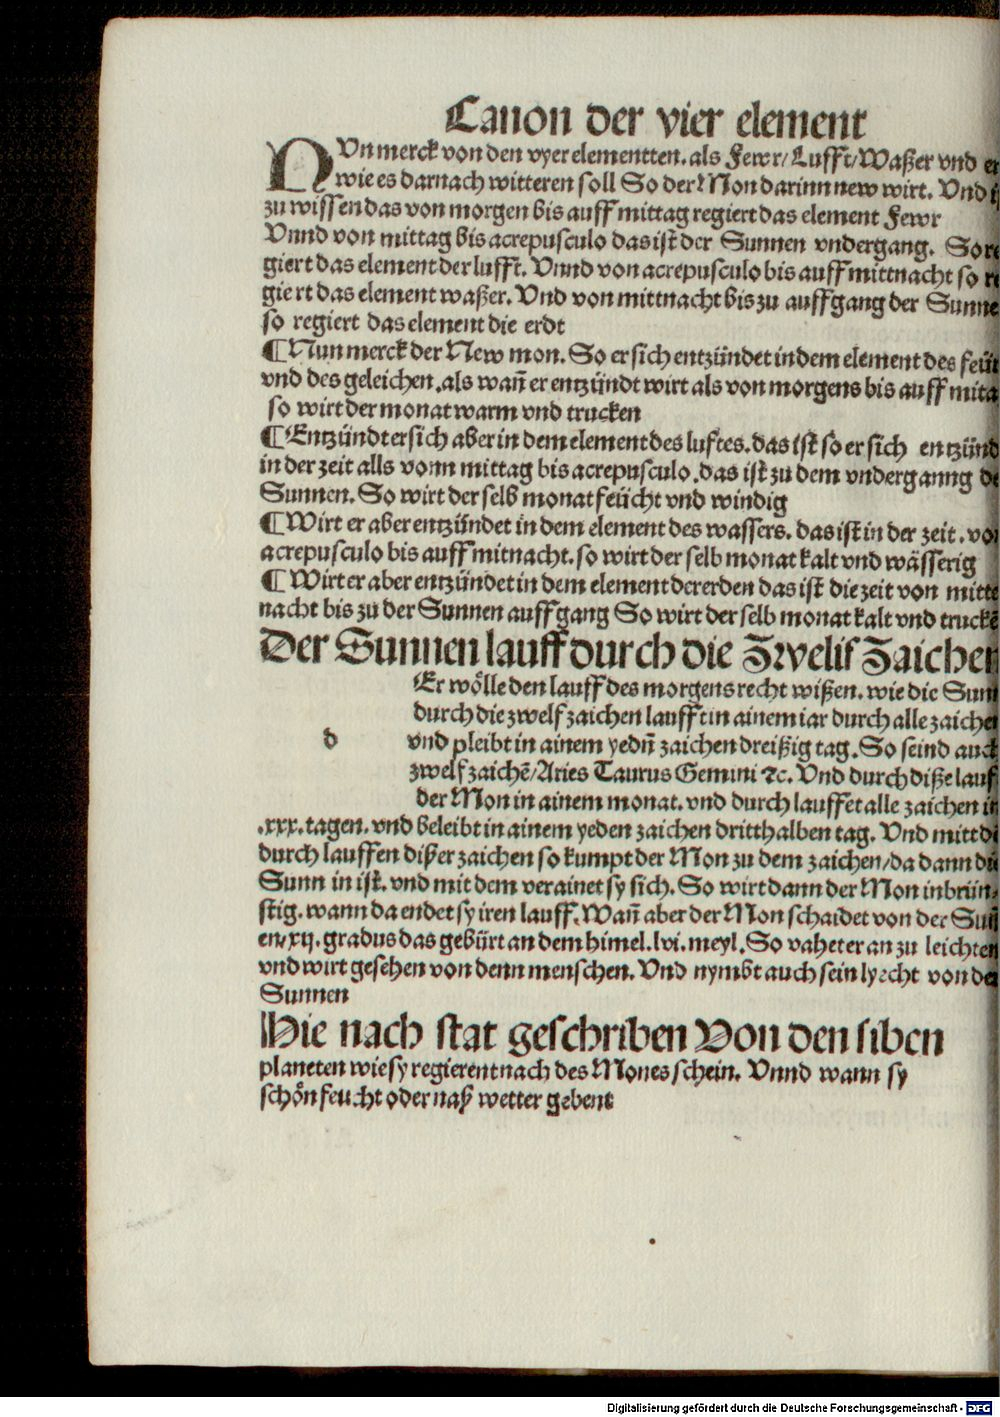 Canon der vier element
NUn merck von den vyer elementten. als Fewr/ Lufft/ Waßer vnd
wie es darnach witteren soll So der Mon darinn new wirt. Vnd
zu wissen das von morgen bis auff mittag regiert das element Fewr
Vnnd von mittag bis acrepusculo das ist der Sunnen vndergang. So re
giert das element der lufft. Vnnd von acrepusculo bis auff mittnacht so re
giert das element waßer. Vnd von mittnacht bis zu auffgang der Sunne
so regiert das element die erdt
¶ Nun merck der New mon. So er sich entzündet in dem element des feü
vnd des geleichen. als wañ er entzündt wirt als von morgens bis auff mita
so wirt der monat warm vnd trucken
¶ Entzündt er sich aber in dem element des luftes. das ist so er sich entzünd
in der zeit alls vonn mittag bis acrepusculo. das ist zu dem vnderganng de
Sunnen. So wirt der selb monat feücht vnd windig
¶ Wirt er aber entzündet in dem element des wassers. das ist in der zeit. vo
acrepusculo bis auff mitnacht. so wirt der selb monat kalt vnd wässerig
¶ Wirt er aber entzündet in dem element der erden das ist die zeit von mitte
nacht bis zu der Sunnen auffgang So wirt der selb monat kalt vnd truckē
Der Sunnen lauff durch die Zwelif Zaichen
Er wölle den lauff des morgens recht wißen. wie die Sun
durch die zwelf zaichen laufft in ainem iar durch alle zaichen
d vnd pleibt in ainem yedñ zaichen dreißig tag. So seind auch
zwelf zaichē/ Aries Taurus Gemini ⁊c. Vnd durch diße lauf
der Mon in ainem monat. vnd durch lauffet alle zaichen in
.xxx. tagen. vnd beleibt in ainem yeden zaichen dritthalben tag. Vnd mitt di
durch lauffen dißer zaichen so kumpt der Mon zu dem zaichen/ da dann di
Sunn in ist. vnd mit dem verainet sy sich. So wirt dann der Mon inbrün⸗
stig. wann da endet sy iren lauff. Wañ aber der Mon schaidet von der Suñ
en/ xij. gradus das gebürt an dem himel. lvi. meyl. So vahet er an zu leichten
vnd wirt gesehen von denn menschen. Vnd nymbt auch sein lyecht von der
Sunnen
Hie nach stat geschriben Von den siben
planeten wie sy regierent nach des Mones schein. Vnnd wann sy
schön feucht oder naß wetter gebent
Digitalisierung gefördert durch die Deutsche Forschungsgemeinschaft - DFG